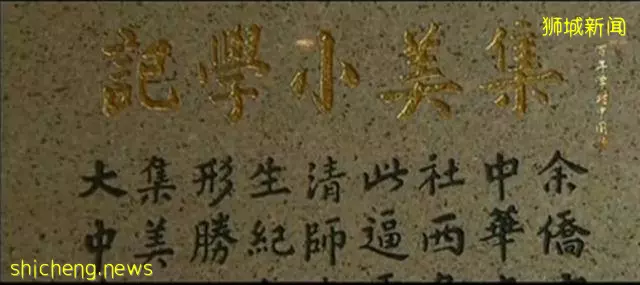 狮城新闻
集美小學記
余僑
中華
社西
此逼
清師
生紀
形勝
集美
大中
shicheng.news